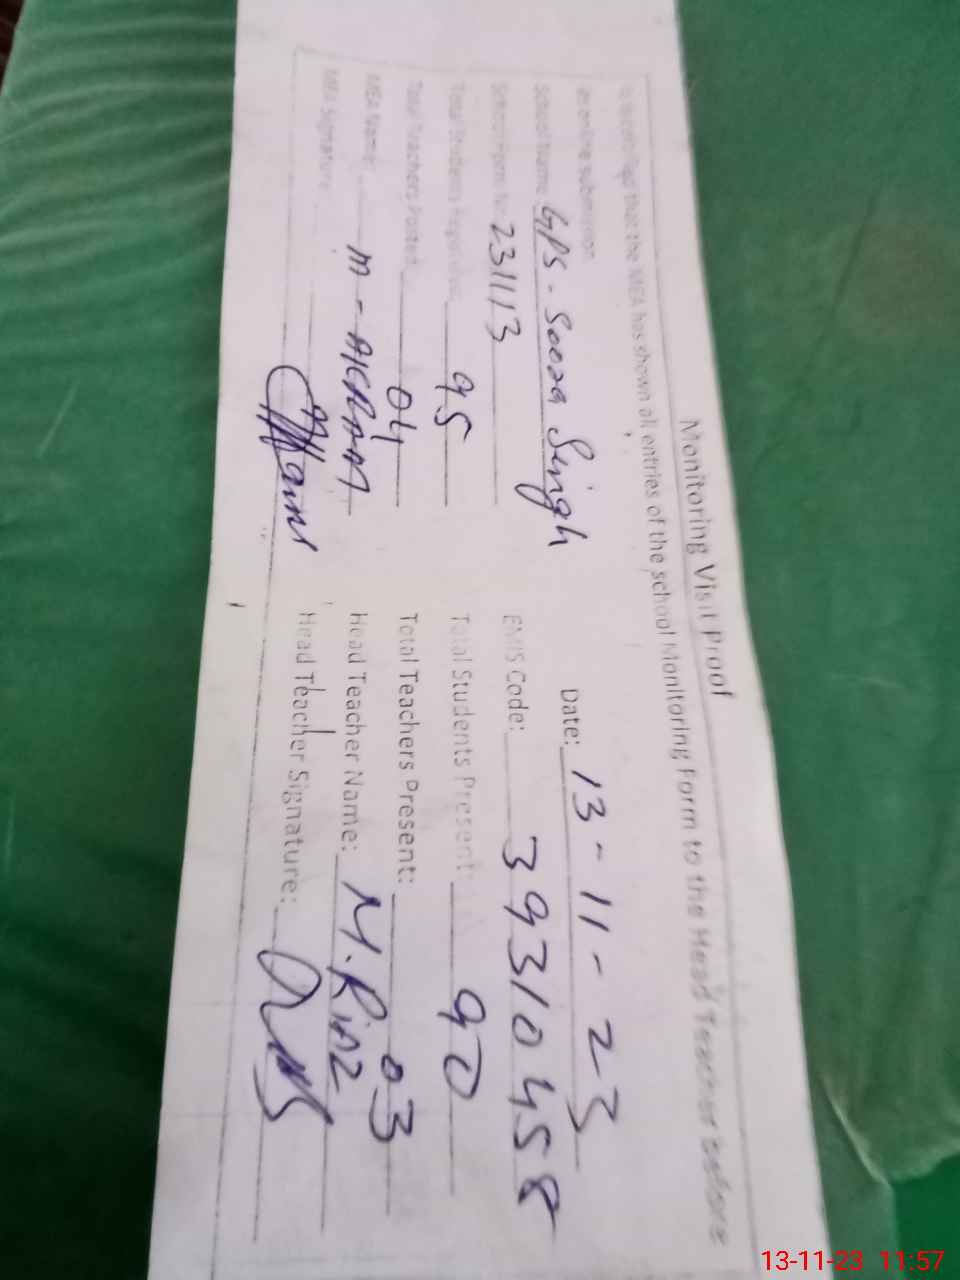 Monitoring Visit Proof
is certified that the MEA has shown all entries of the school Monitoring Form to the Head Teacher before
an online submission
School Name: GPS - Soora Singh Date: 13-11-23
231113 EMIS Code: 39310458
Total Students 95 Total Students Present: 90
Total Teachers Posted: 04 Total Teachers Present: 03
MEA Name: M-AKRAM Head Teacher Name: M.Riaz
MEA Signature: Head Teacher Signature:
13-11-23 11:57